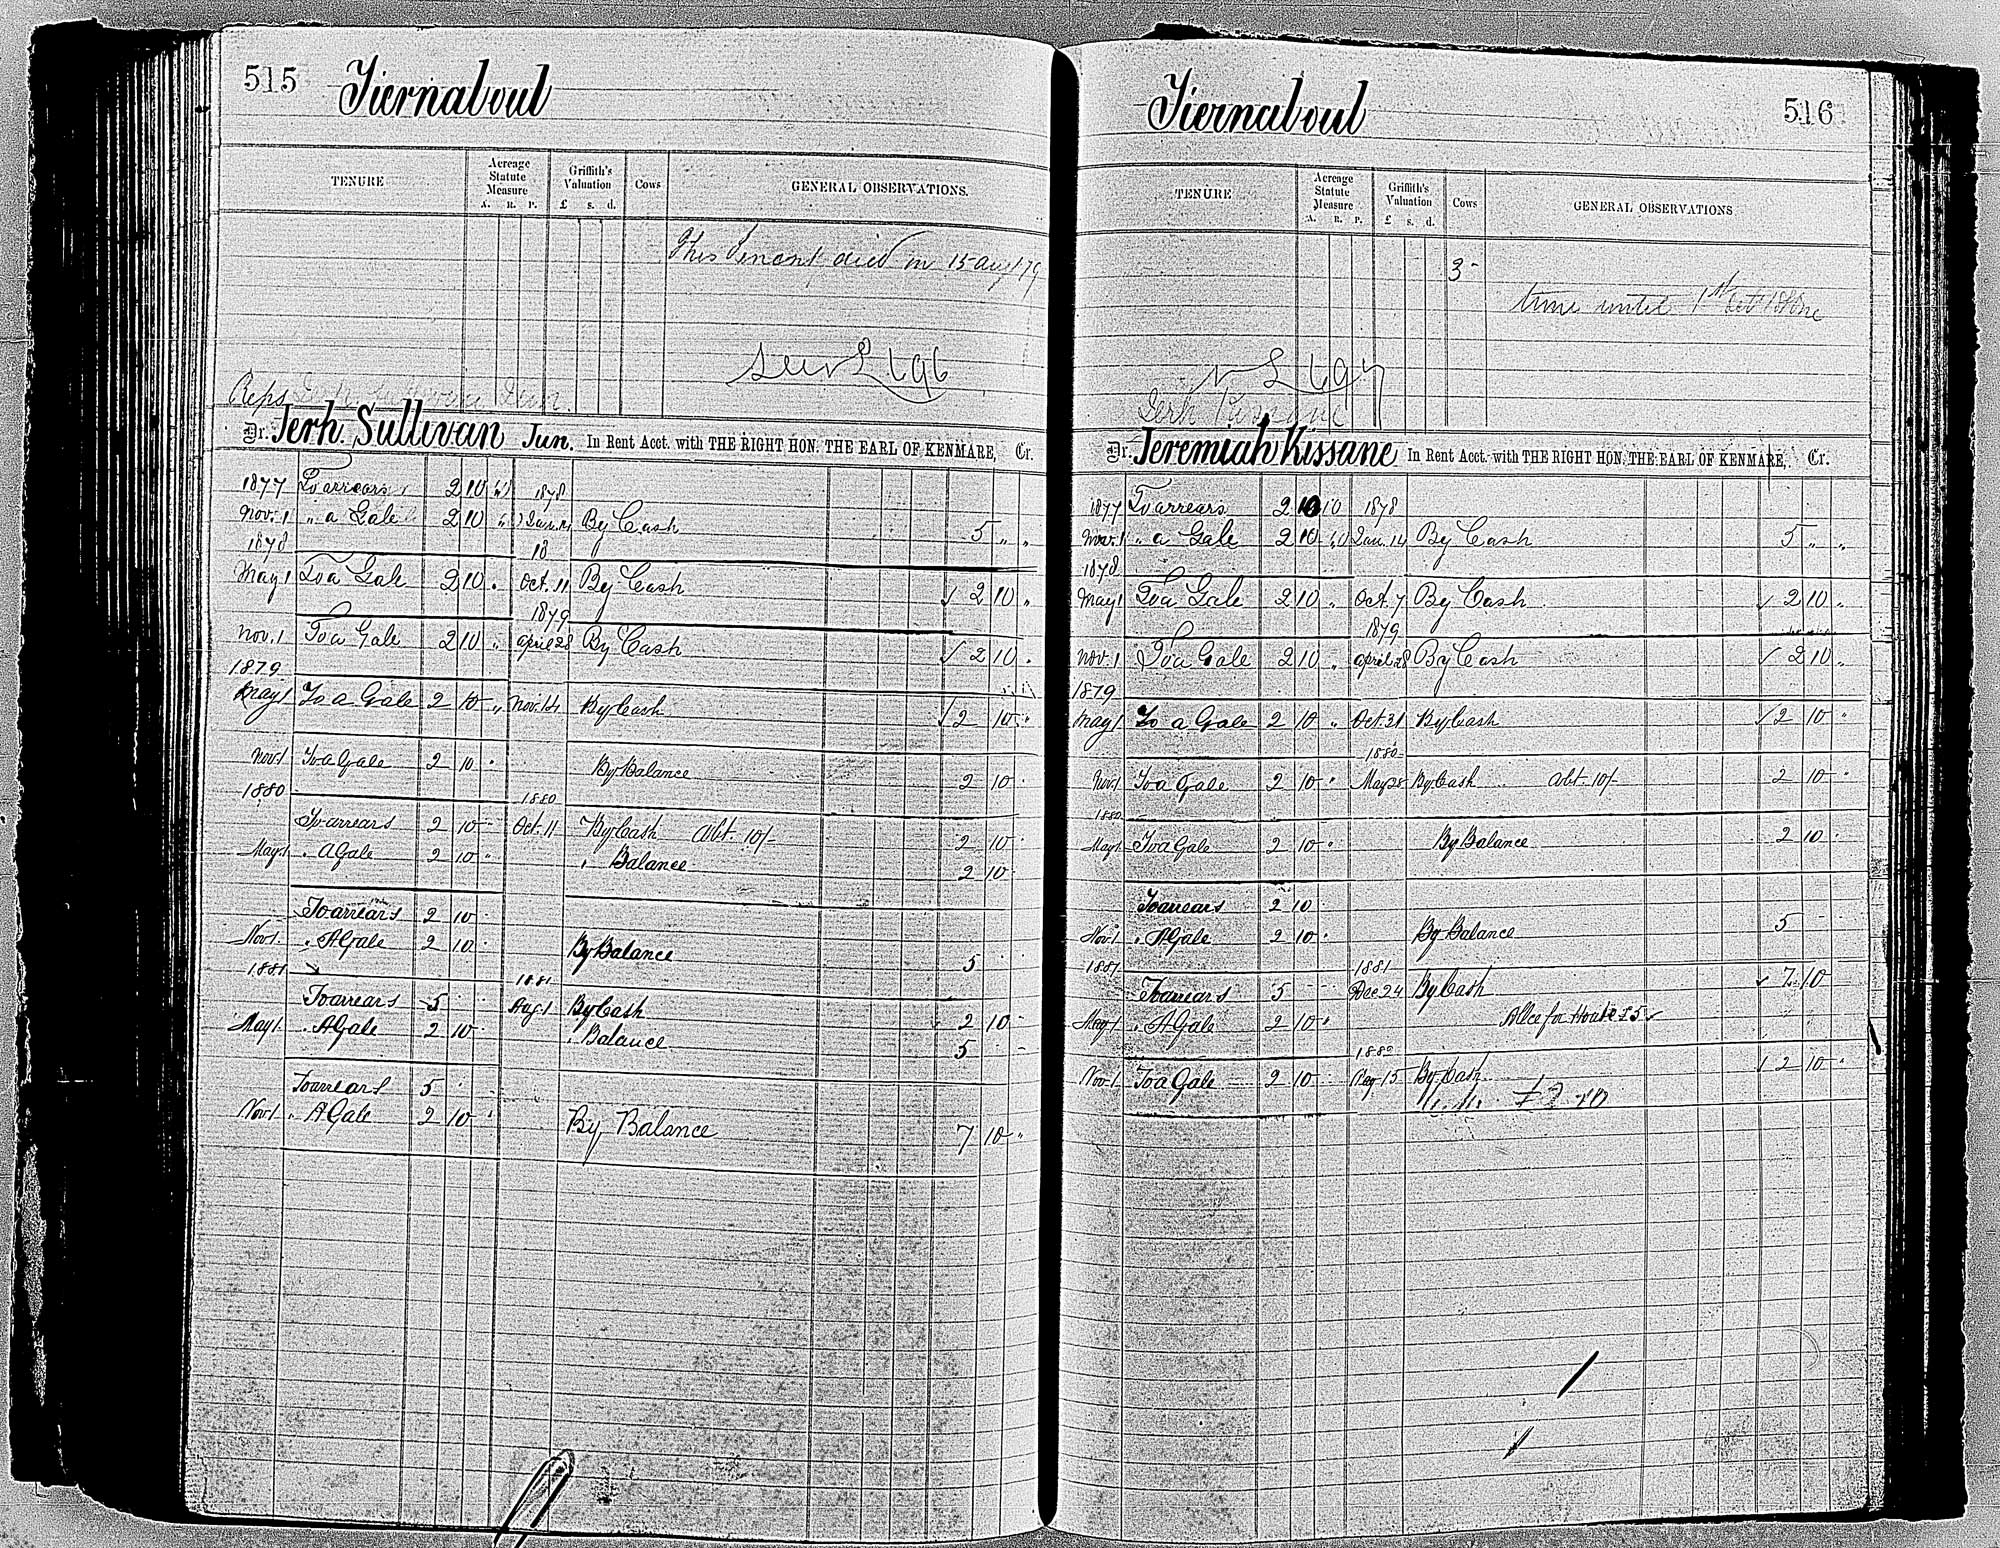 515 Tiernaboul
TENURE
Acreage Statute Measure
A. R. P.
Griffith's Valuation
£ s. d.
Cows
GENERAL OBSERVATIONS.
This Tenant died on 15 Augt 79
see L 696
Reps
Dr. Jerh. Sullivan Jun. In Rent Acct. with THE RIGHT HON. THE EARL OF KENMARE, Cr.
1877 To arrears 2 10 1878
Nov. 1 " a Gale 2 10 Jan. 14 By Cash 5 " "
1878 18
May 1 To a Gale 2 10 " Oct. 11 By Cash ✓ 2 10 "
1879
Nov. 1 To a Gale 2 10 " April 28 By Cash ✓ 2 10 "
1879
May 1 To a Gale 2 10 " Nov. 14 By Cash ✓ 2 10 "
Nov 1 To a Gale 2 10 " By Balance 2 10
1880 1880
To arrears 2 10 Oct. 11 By Cash Abt. 10/- 2 10
May 1 " A Gale 2 10 " " Balance 2 10
To arrears 2 10
Nov 1. " A Gale 2 10 By Balance 5
1881 1881
To arrears 5 Aug. 1 By Cash 2 10
May 1. " A Gale 2 10 " Balance 5
To arrears 5
Nov 1 " A Gale 2 10 " By Balance 7 10 "
Tiernaboul 516
TENURE
Acreage Statute Measure
A. R. P.
Griffith's Valuation
£ s. d.
Cows
GENERAL OBSERVATIONS
3
time until 1st
L 697
Jerh Kissane
Dr. Jeremiah Kissane In Rent Acct. with THE RIGHT HON. THE EARL OF KENMARE, Cr.
1877 To arrears 2 10 1878
Nov. 1 " a Gale 2 10 Jan. 14 By Cash 5 " "
1878
May 1 To a Gale 2 10 " Oct. 7 By Cash ✓ 2 10 "
1879
Nov. 1 To a Gale 2 10 " April 28 By Cash ✓ 2 10 "
1879
May 1 To a Gale 2 10 " Oct. 31 By Cash ✓ 2 10 "
1880
Nov 1 To a Gale 2 10 " May 28 By Cash Abt. 10/- 2 10 "
1880
May 1 To a Gale 2 10 " By Balance 2 10 "
To arrears 2 10
Nov 1 " A Gale 2 10 " By Balance 5
1881 1881
To arrears 5 Dec 24 By Cash ✓ 7 10
May 1 " A Gale 2 10 " Allce for House £5 ✓
1882
Nov 1. To a Gale 2 10 May 15 By Cash ✓ 2 10 "